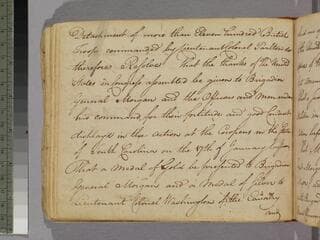 Detachment of more than Eleven hundred British
Troops commanded by Lieutenant Colonel Tarleton
therefore Resolved That the thanks of the United
States in Congress assembled be given to Brigadier
General Morgan and the Officers and Men under
his command for their fortitude and good Conduct
displayed in the action at the Cowpens in the State
of South Carolina on the 17th of January
That a Medal of Gold be presented to Brigadier
General Morgan and a Medal of Silver to
Lieutenant Colonel Washington of the Cavalry